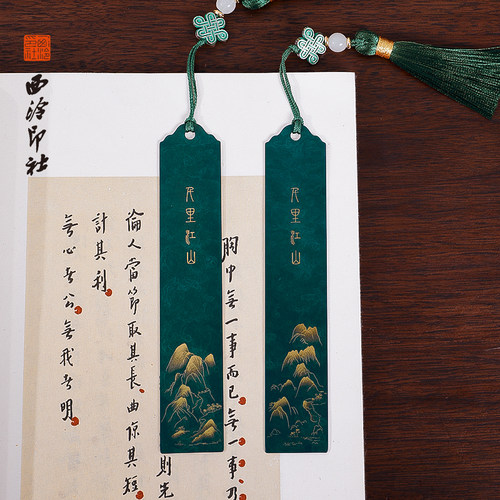 西泠印社
千里江山
千里江山
胸中無一事而已無一事乃
則先
論人當節取其長曲諒其短
計其利
無心者公無我者明